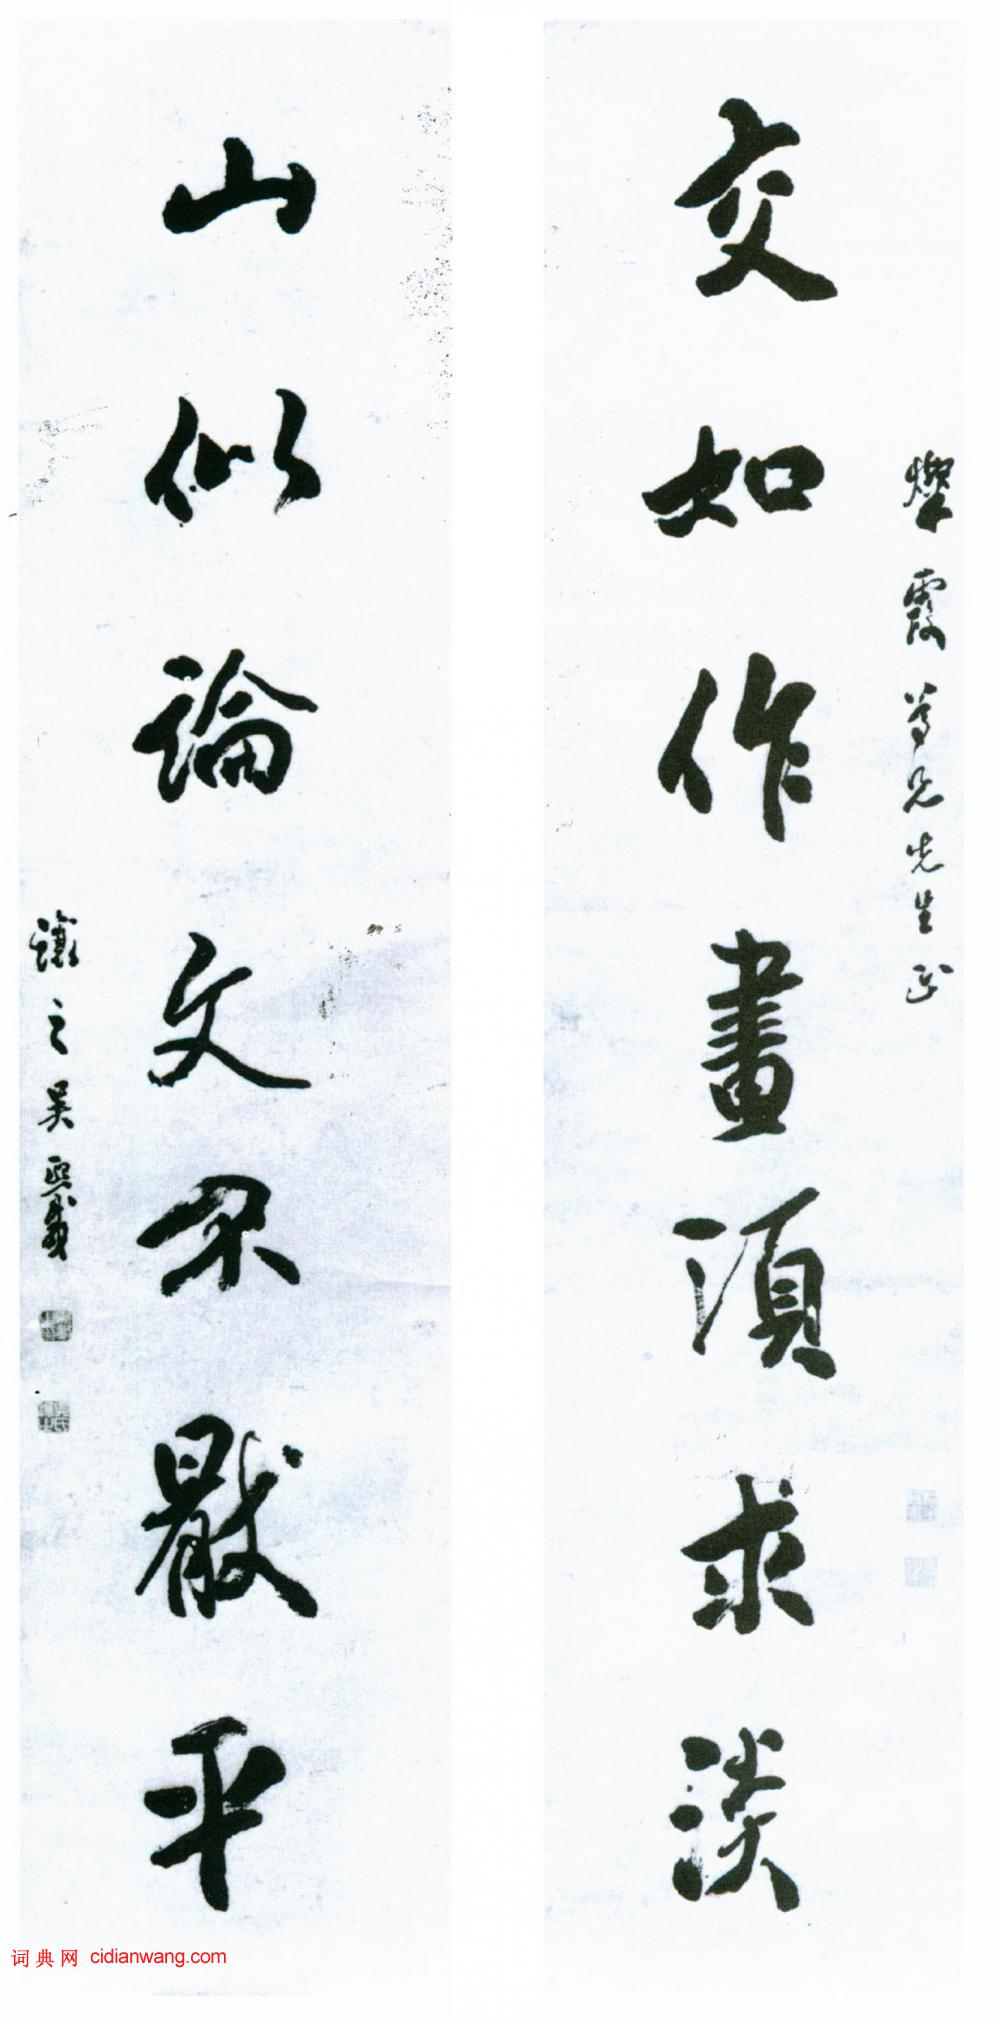 燦霞尊兄先生正
交如作畫須求淡
山似論文不厭平
讓之吳熙載
词典网 cidianwang.com